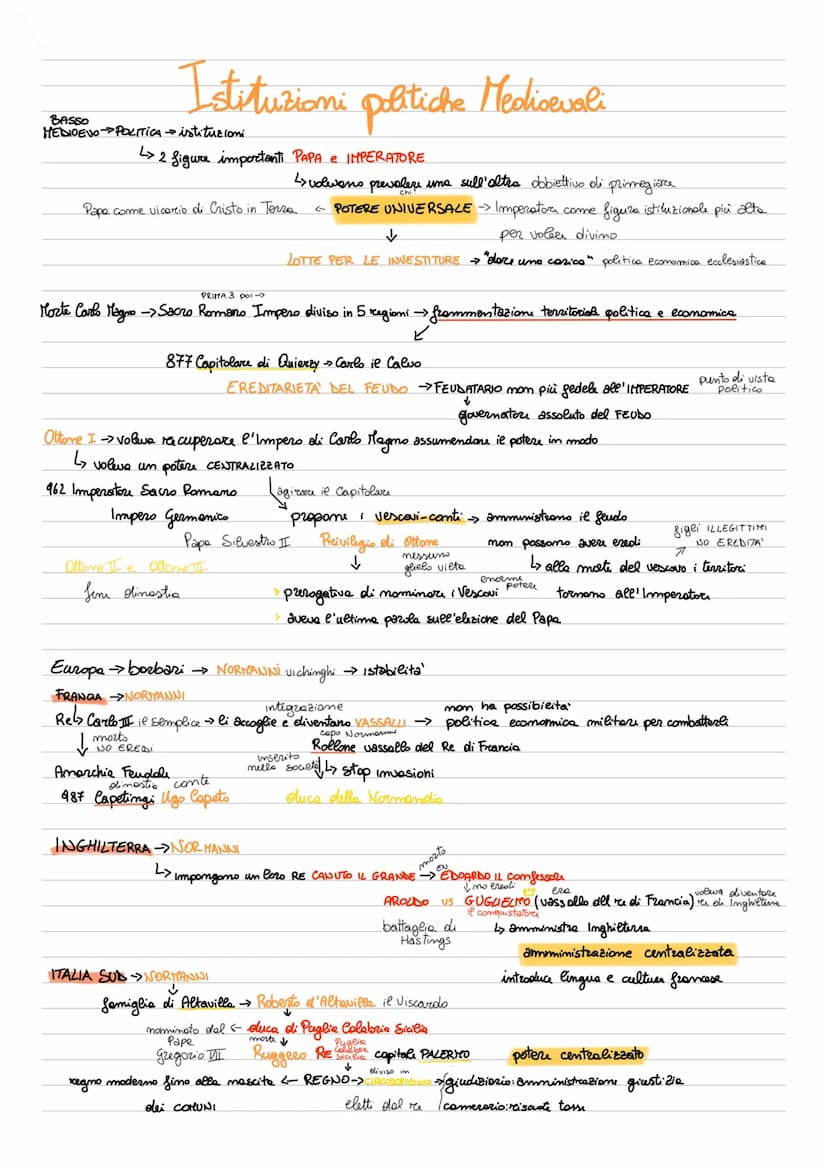 Istituzioni politiche Medioevali
BASSO
MEDIOEVO → POLITICA → istituzioni
↳ 2 figure importanti PAPA e IMPERATORE
↳ volevano prevalere uno sull'altro obbiettivo di primeggiare
chi
Papa come vicario di Cristo in Terra ← POTERE UNIVERSALE → Imperatore come figura istituzionale più alta
↓ per voler divino
LOTTE PER LE INVESTITURE → "dare una carica" politica economica ecclesiastica
PRIMA 3 poi →
Morte Carlo Magno → Sacro Romano Impero diviso in 5 regioni → frammentazione territoriale politica e economica
↙
877 Capitolare di Quierzy → Carlo il Calvo
EREDITARIETA' DEL FEUDO → FEUDATARIO non più fedele all'IMPERATORE punto di vista politico
↓
governatore assoluto del FEUDO
Ottone I → voleva recuperare l'Impero di Carlo Magno assumendone il potere in modo
↳ voleva un potere CENTRALIZZATO
962 Imperatore Sacro Romano aggirare il Capitolare
Impero Germanico propone i vescovi-conti → amministrano il feudo
figli ILLEGITTIMI
Papa Silvestro II Privilegio di Ottone non possono avere eredi ↗ NO EREDITA'
nessuno
Ottone II e Ottone III ↓ glielo vieta ↳ alla morte del vescovo i territori
enorme potere
fine dinastia > prerogativa di nominare i Vescovi tornano all'Imperatore
> aveva l'ultima parola sull'elezione del Papa
Europa → barbari → NORMANNI vichinghi → istabilita'
FRANCIA → NORMANNI
integrazione non ha possibilita'
Re ↳ Carlo III il semplice → li accoglie e diventano VASSALLI → politica economica militare per combatterli
↓ morto capo Normanni
NO EREDI Rollone vassallo del Re di Francia
inserito
Anarchia Feudale nella società ↓ ↳ stop invasioni
dinastia conte
987 Capetingi Ugo Capeto duca della Normandia
INGHILTERRA → NORMANNI
morto
↳ impongono un loro RE CANUTO IL GRANDE → EDOARDO IL confessore
↓ no eredi era
AROLDO vs GUGLIELMO (vassallo del re di Francia) voleva diventare re di Inghilterra
il conquistatore
battaglia di ↳ amministra Inghilterra
Hastings
ammministrazione centralizzata
ITALIA SUD → NORMANNI introduce lingua e cultura francese
↓
famiglia di Altavilla → Roberto d'Altavilla il Viscardo
↓
nominato dal ← duca di Puglia Calabria Sicilia
Papa morte ↓ Puglia
Gregorio VII Ruggero RE Calabria Sicilia capitale PALERMO potere centralizzato
↓ diviso in
regno moderno fino alla nascita ← REGNO → CIRCOSCRIZIONI → giudiziario: amministrazione giustizia
dei COMUNI eletti dal re camerario: riscuote tasse